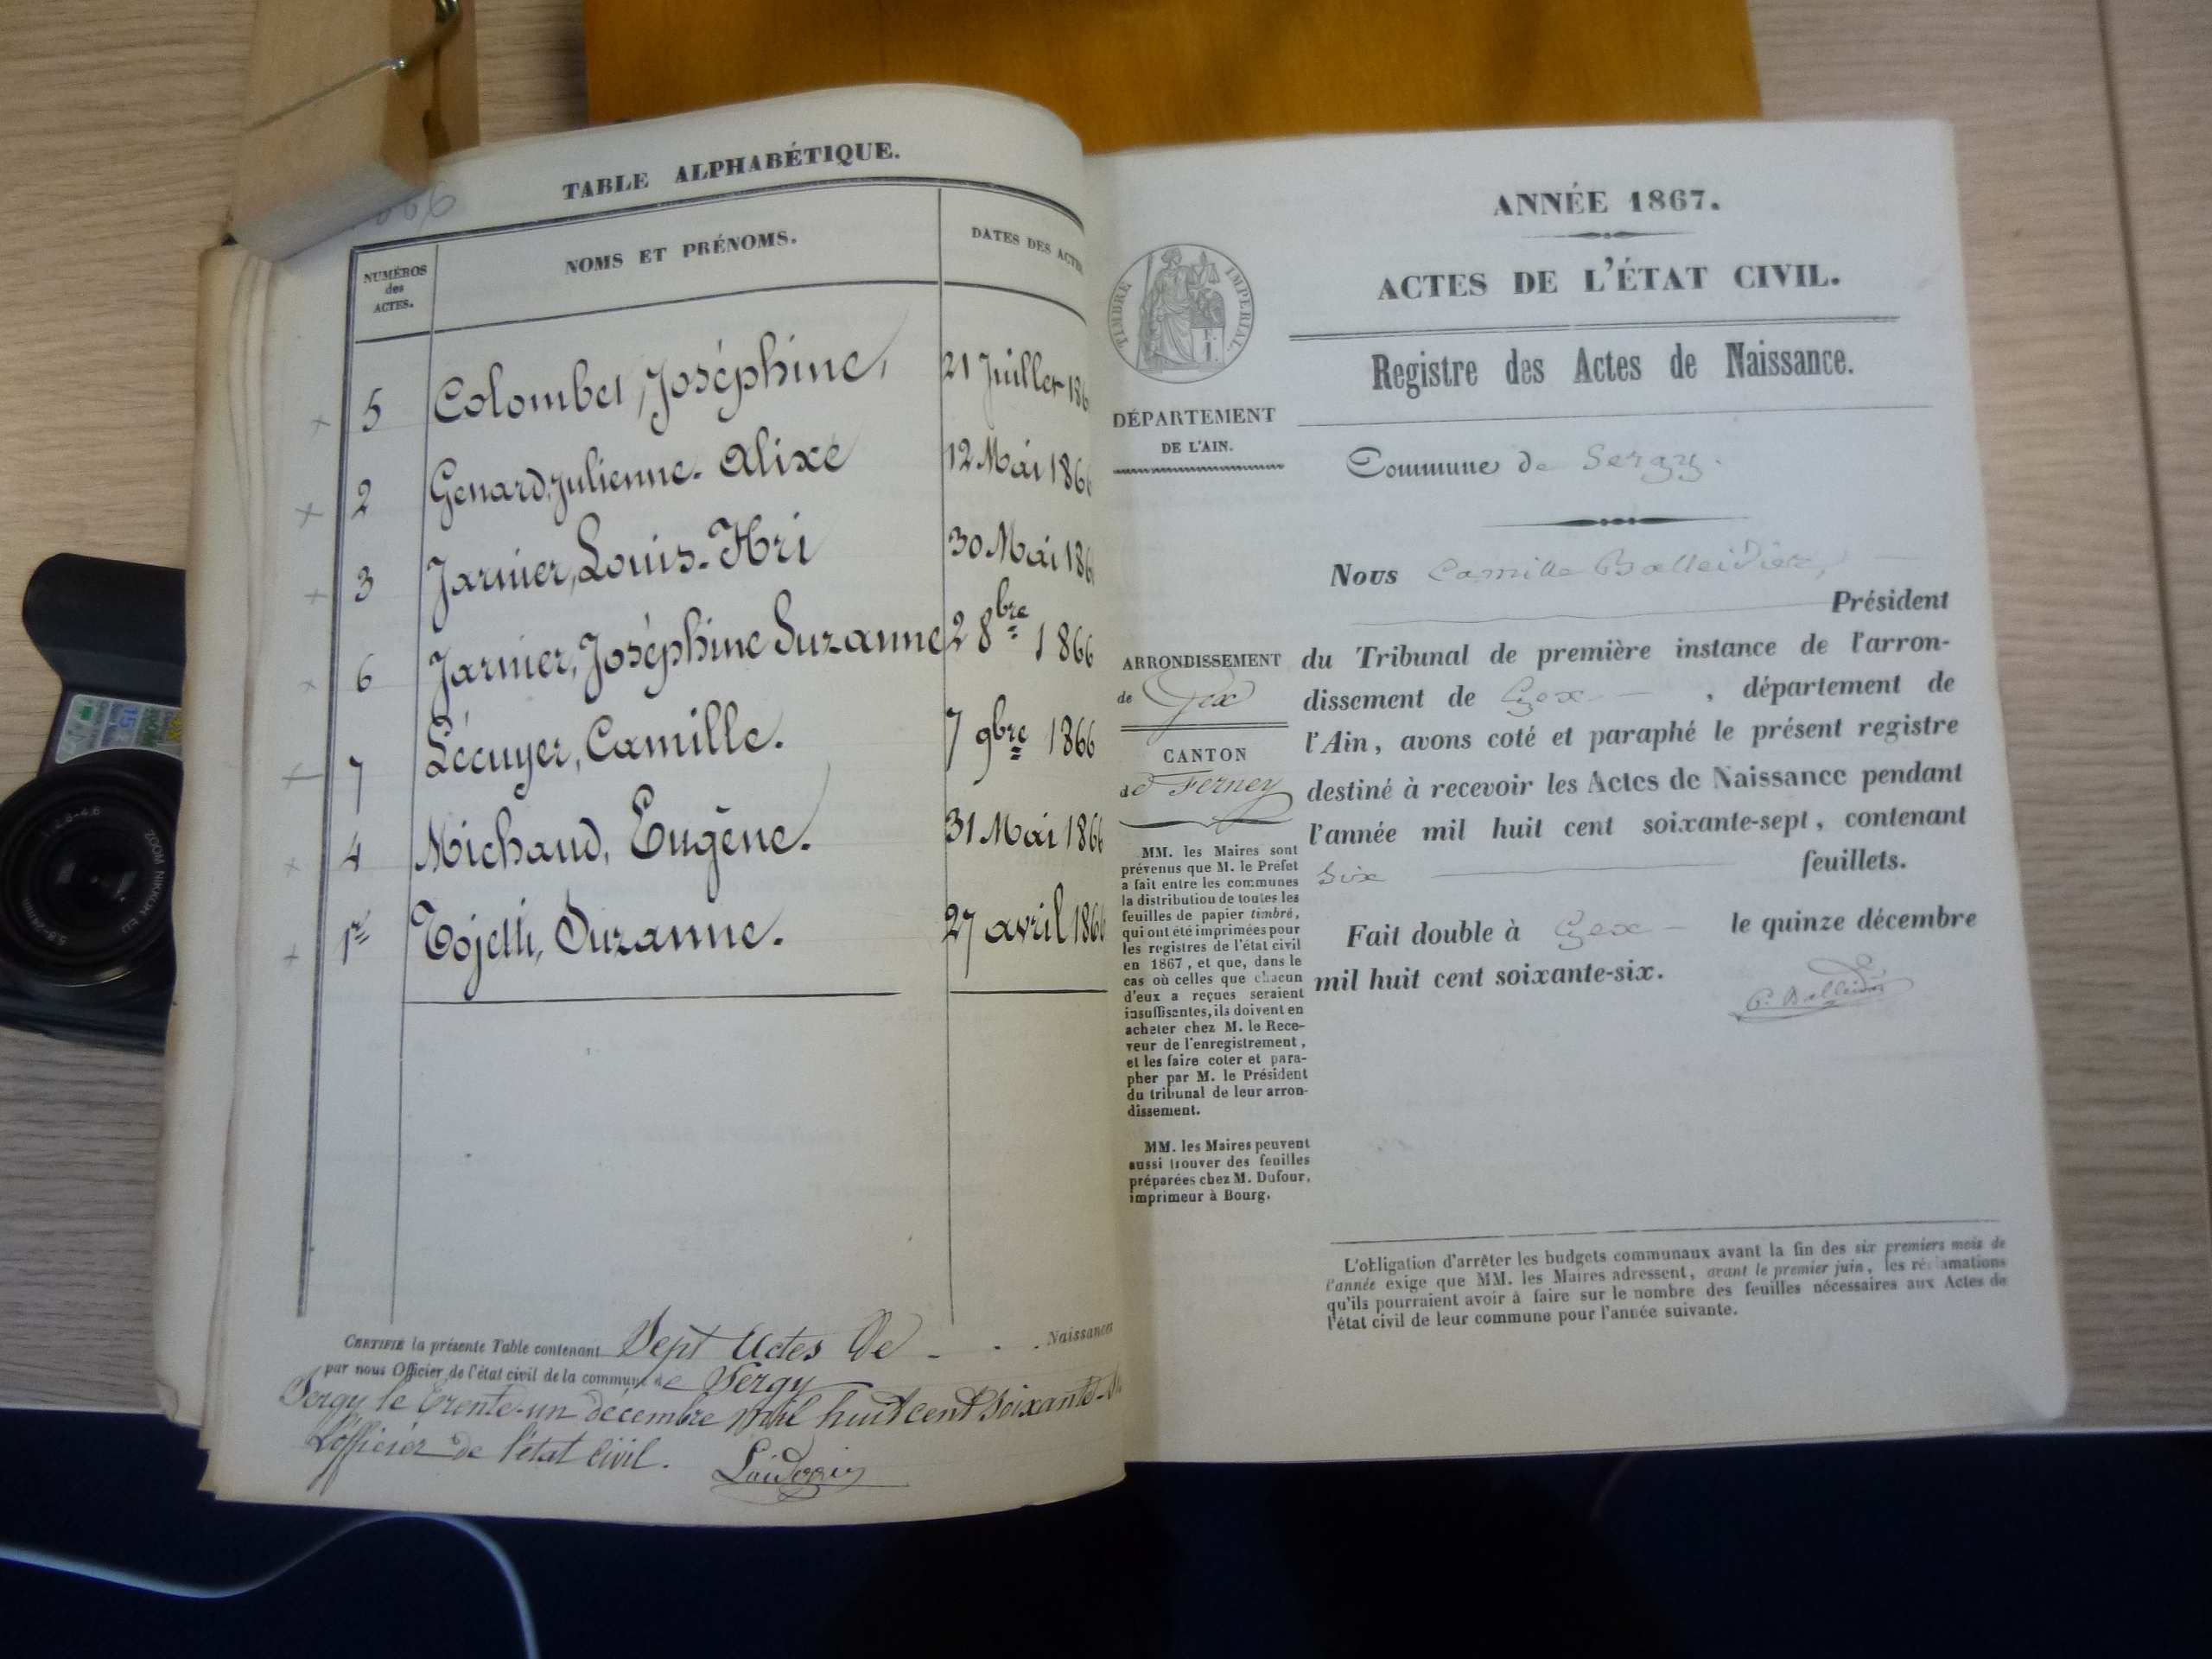 TABLE ALPHABÉTIQUE.
NUMÉROS
des
ACTES.
NOMS ET PRÉNOMS.
DATES DES ACTES
5 Colombet, Joséphine, 21 Juillet 186
2 Genard, Julienne. Alixe 12 Mai 1866
3 Jarnier, Louis. Hri 30 Mai 186
6 Jarnier, Joséphine Suzanne 2 8bre 1866
7 Lécuyer, Camille. 7 9bre 1866
4 Michaud, Eugène. 31 Mai 1866
1er Tojetti, Suzanne. 27 avril 1866
CERTIFIÉ la présente Table contenant Sept Actes De - - . Naissances
par nous Officier de l'état civil de la commune de Sergy
Sergy le trente-un décembre mil huit cent soixante-
L'officier de l'état civil.
ANNÉE 1867.
ACTES DE L'ÉTAT CIVIL.
TIMBRE IMPERIAL.
Registre des Actes de Naissance.
DÉPARTEMENT
DE L'AIN.
Commune de Sergy.
Nous Camille
Président
du Tribunal de première instance de l'arron-
dissement de Gex — , département de
l'Ain, avons coté et paraphé le présent registre
destiné à recevoir les Actes de Naissance pendant
l'année mil huit cent soixante-sept, contenant
Six feuillets.
Fait double à Gex — le quinze décembre
mil huit cent soixante-six.
ARRONDISSEMENT
de Gex
CANTON
de Ferney
MM. les Maires sont
prévenus que M. le Préfet
a fait entre les communes
la distribution de toutes les
feuilles de papier timbré,
qui ont été imprimées pour
les registres de l'état civil
en 1867, et que, dans le
cas où celles que chacun
d'eux a reçues seraient
insuffisantes, ils doivent en
acheter chez M. le Rece-
veur de l'enregistrement,
et les faire coter et para-
pher par M. le Président
du tribunal de leur arron-
dissement.
MM. les Maires peuvent
aussi trouver des feuilles
préparées chez M. Dufour,
imprimeur à Bourg.
L'obligation d'arrêter les budgets communaux avant la fin des six premiers mois de
l'année exige que MM. les Maires adressent, avant le premier juin, les réclamations
qu'ils pourraient avoir à faire sur le nombre des feuilles nécessaires aux Actes de
l'état civil de leur commune pour l'année suivante.
ZOOM NIKKOR ED